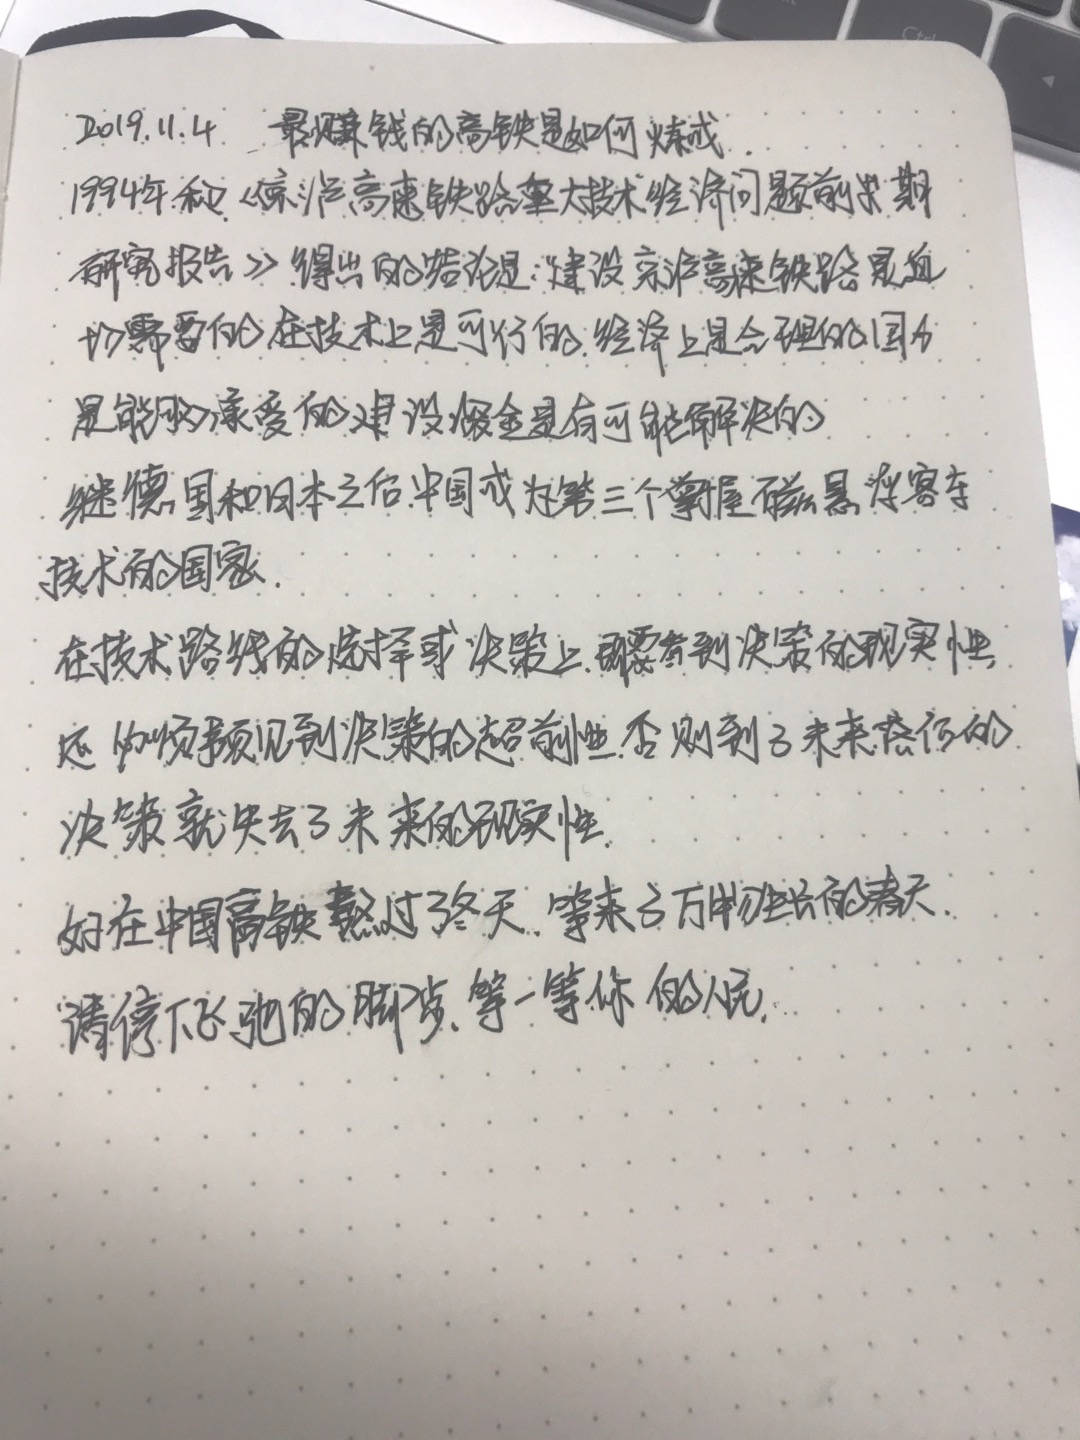 2019.11.4 最赚钱的高铁是如何炼成.
1994年和《京沪高速铁路重大技术经济问题前期
研究报告》得出的结论是:建设京沪高速铁路是迫
切需要的在技术上是可行的.经济上是合理的国力
是能够承受的建设资金是有可能解决的
继德国和日本之后.中国成为第三个掌握磁悬浮客车
技术的国家.
在技术路线的选择或决策上.既要看到决策的现实性
还必须预见到决策的超前性.否则到了未来 的
决策就失去了未来的现实性.
好在中国高铁熬过了冬天.等来了万物生长的春天.
请停下飞驰的脚步.等一等你的人民.
Ctrl